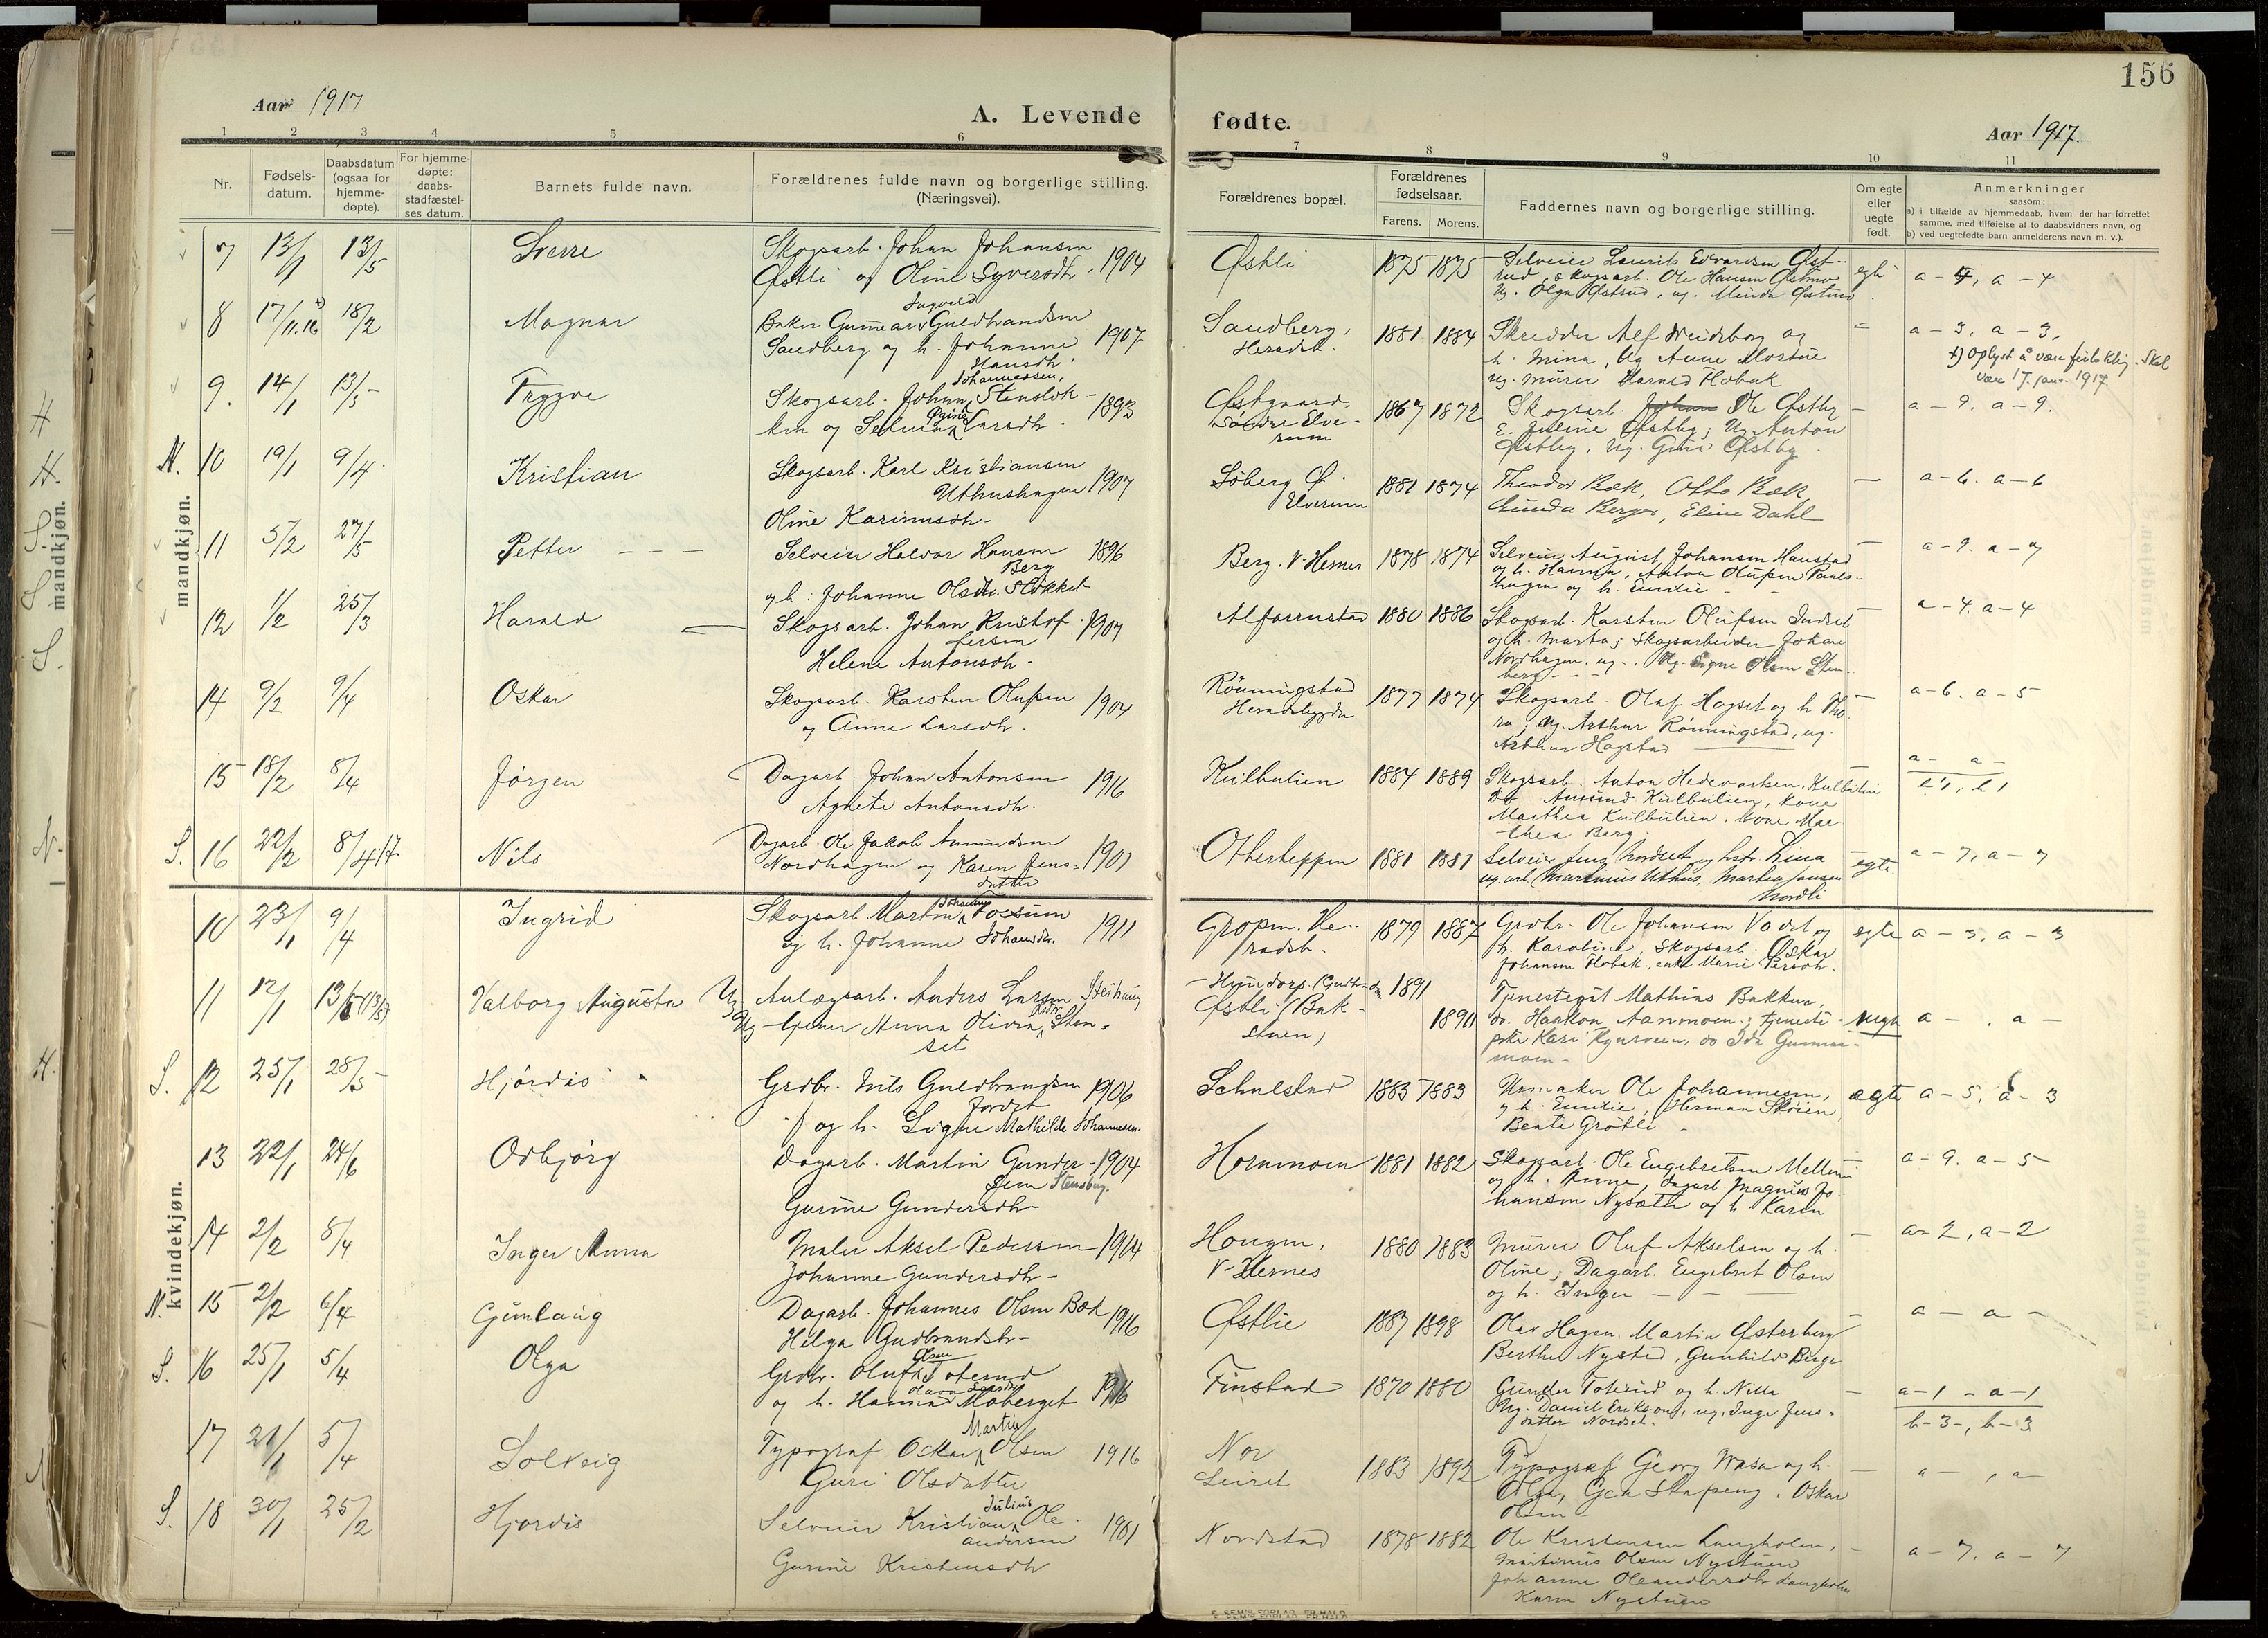 156
Aar 1917
A. Levende
fødte.
Aar 1917.
1 2 3 4 5 6 7 8 9 10 11
Nr.
Fødsels-
datum.
Daabsdatum
(ogsaa for
hjemme-
døpte).
For hjemme-
døpte:
daabs-
stadfæstel-
ses datum.
Barnets fulde navn.
Forældrenes fulde navn og borgerlige stilling.
(Næringsvei).
Forældrenes bopæl.
Forældrenes
fødselsaar.
Farens. Morens.
Faddernes navn og borgerlige stilling.
Om egte
eller
uegte
født.
Anmerkninger
saasom:
a) i tilfælde av hjemmedaab, hvem der har forrettet
samme, med tilføielse av to daabsvidners navn, og
b) ved uegtefødte barn anmelderens navn m. v.).
mandkjøn.
mandkjøn.
7 13/1 13/5 Sverre Skogsarb. Johan Johansen
Østli og Oline Syversdtr. 1904
Østli 1875 1875 Selveier Laurits Edvardsen Øst-
rud, Skogsarb. Ole Hansen Østmo
Ug. Olga Østrud, ug. Minda Østmo
a - 4, a - 4
8 17/11.16 18/2 Magnar Ingvald
Baker Gunnar Guldbrandsen
Sandberg og h. Johanne 1907
Hansdtr.
Sandberg, 1881 1884
Heradsb.
Skredder Alf Weidsborg og
h. Mina, Ug Anne
ug. murer Harald Hobak
a - 3, a - 3,
+) Oplyst å være feilaktig. Skal
være 17. jan. 1917
9. 14/1 13/5 Trygve Johannessen,
Skogsarb. Johan Stenslok-
ken og Selma Larsdtr. 1893
Østgaard, 1867 1872
Søndre Elve-
rum
Skogsarb. Ole Østby
E. Juline Østby; Ug. Anton
Østby, Ug. Guri Østby
a - 9. a - 9.
N. 10 19/1 9/4 Kristian Skogsarb. Karl Kristiansen
Uthushagen 1907
Oline Karinusdtr.
Søberg Ø. 1881 1874
Elverum
Theodor Bæk, Otto Bæk
Gunda Berger, Eline Dahl
a - 6. a - 6
11 5/2 27/5 Petter Selveier Halvor Hansen 1896
Berg
og h. Johanne Olsdtr. Slokket
Berg. V. Hernes 1878 1874
Selveier August Johansen Haustad
og h. Hanna, Anton Olufsen
og h. Emilie
a - 9. a - 7
12 1/2 25/3 Harald Skogsarb. Johan Kristof- 1907
fersen
Helene Antonsdtr.
Alfarrustad 1880 1886
Skogsarb. Karsten Olufsen Indset
og h. Marta; Skogsarbeider Johan
Nordhagen, ug. Ug. Signe Olsen Sten-
berg
a - 4. a - 4
14 9/2 9/4 Oskar Skogsarb. Karsten Olufsen 1904
og Anne Larsdtr.
Rønningstad 1877 1874
Heradsbygda
Skogsarb. Olaf Hagset og h. Tho-
ra; Ug. Arthur Rønningstad, ug.
Arthur Hagstad
a - 6. a - 5
15 18/2 8/4 Jørgen Dagarb. Johan Antonsen 1916
Agnete Antonsdtr.
Kulbulien 1884 1889
Skogsarb. Anton Hedevartsen, Kulbulien
Do Amund Kulbulien, kone
Marthea Kulbulien, kone Mar-
thea Berg.
a - a -
b 1, b 1
S. 16 22/2 8/4 17 Nils Dagarb. Ole Jakob Amundsen
Nordhagen og Karen Jens- 1901
datter
1881 1881
Selveier Jens Nordset og hstr Lina
ug. arb. Martinius Uthus, Martea Jansen
Nordli
egte a - 7, a - 7
kvindekjøn.
10 23/1 9/4 Ingrid Skogsarb Martin Fossum 1911
og h. Johanne Johansdtr.
Gropen. He- 1879 1887
radsb.
Grdbr. Ole Johansen Vadet og
h. Karoline, Skogsarb. Oskar
Johansen Hobak, enke Marie
egte a - 3, a - 3
11 12/1 13/5 Valborg Augusta Ug. Anlægsarb. Anders Larsen, Steihaug
Ug. Anna Olivia Sten-
set
Hundorp. (Gudbr.d. 1891
Østli (Bak- 1891
stuen)
Tjenestegut Mathias Bakken,
do. Haakon Aanmoen; tjeneste-
pike Kari, do Ida Gunnar-
moen
uegte a - . a -
S. 12 25/1 28/5 Hjørdis Grdbr. Nils Guldbrandsen 1906
Fordet
og h. Signe Mathilde Johannesen.
Schulstad 1883 1883
Urmaker Ole Johannesen,
og h. Emilie, Herman Skøien,
Bente Grøtli
ægte a - 5. a - 3
13 22/1 24/6 Odbjørg Dagarb. Martin Gunder- 1904
sen Stensberg.
Gurine Gundersdtr.
Hornmoen 1881 1882
Skogsarb. Ole Engebretsen Mellem
og h. Anne, Dagarb. Magnus Jo-
hansen Nysæter og h Karen
a - 9. a - 5
14 2/2 8/4 Inger Anna Maler Aksel Pedersen 1904
Johanne Gundersdtr.
Haugen, 1880 1883
V. Hernes
Murer Oluf Akselsen og h.
Oline; Dagarb. Engebret Olsen
og h. Inger
a - 2, a - 2
N. 15 2/2 6/4 Gunlaug Dagarb. Johannes Olsen Bæk 1916
Helga Gudbrandsdtr.
Østlie 1887 1898
Olav Hagen, Martin Østerberg
Berthe Nysted, Gunhild Berge
a - a -
S. 16 25/1 5/4 Olga Olsen
Grdbr. Oluf Toterud
og h. Hanna Moberget 1916
Finstad 1870 1880
Gunder Toterud og h. Nilla
Ug. Daniel Erikson, ug. Inge Jens-
datter Nordset.
a - 1 - a - 1
b - 3 -, b - 3
17 21/1 5/4 Solveig Martin
Typograf Oskar Olsen 1916
Guri Olsdatter
Nor 1883 1892
Leiret
Typograf Georg Wasa og h.
Olga, Oskar
Olsen
a - , a -
S. 18 30/1 25/2 Hjordis Julius
Selveier Kristian Ole- 1901
andersen
Gurine Kristensdtr
Nordstad 1878 1882
Ole Kristensen Langholen,
Martinus Olsen Nystuen
Johanne Oleandersdtr Langholen
Karen Nystuen
a - 7. a - 7